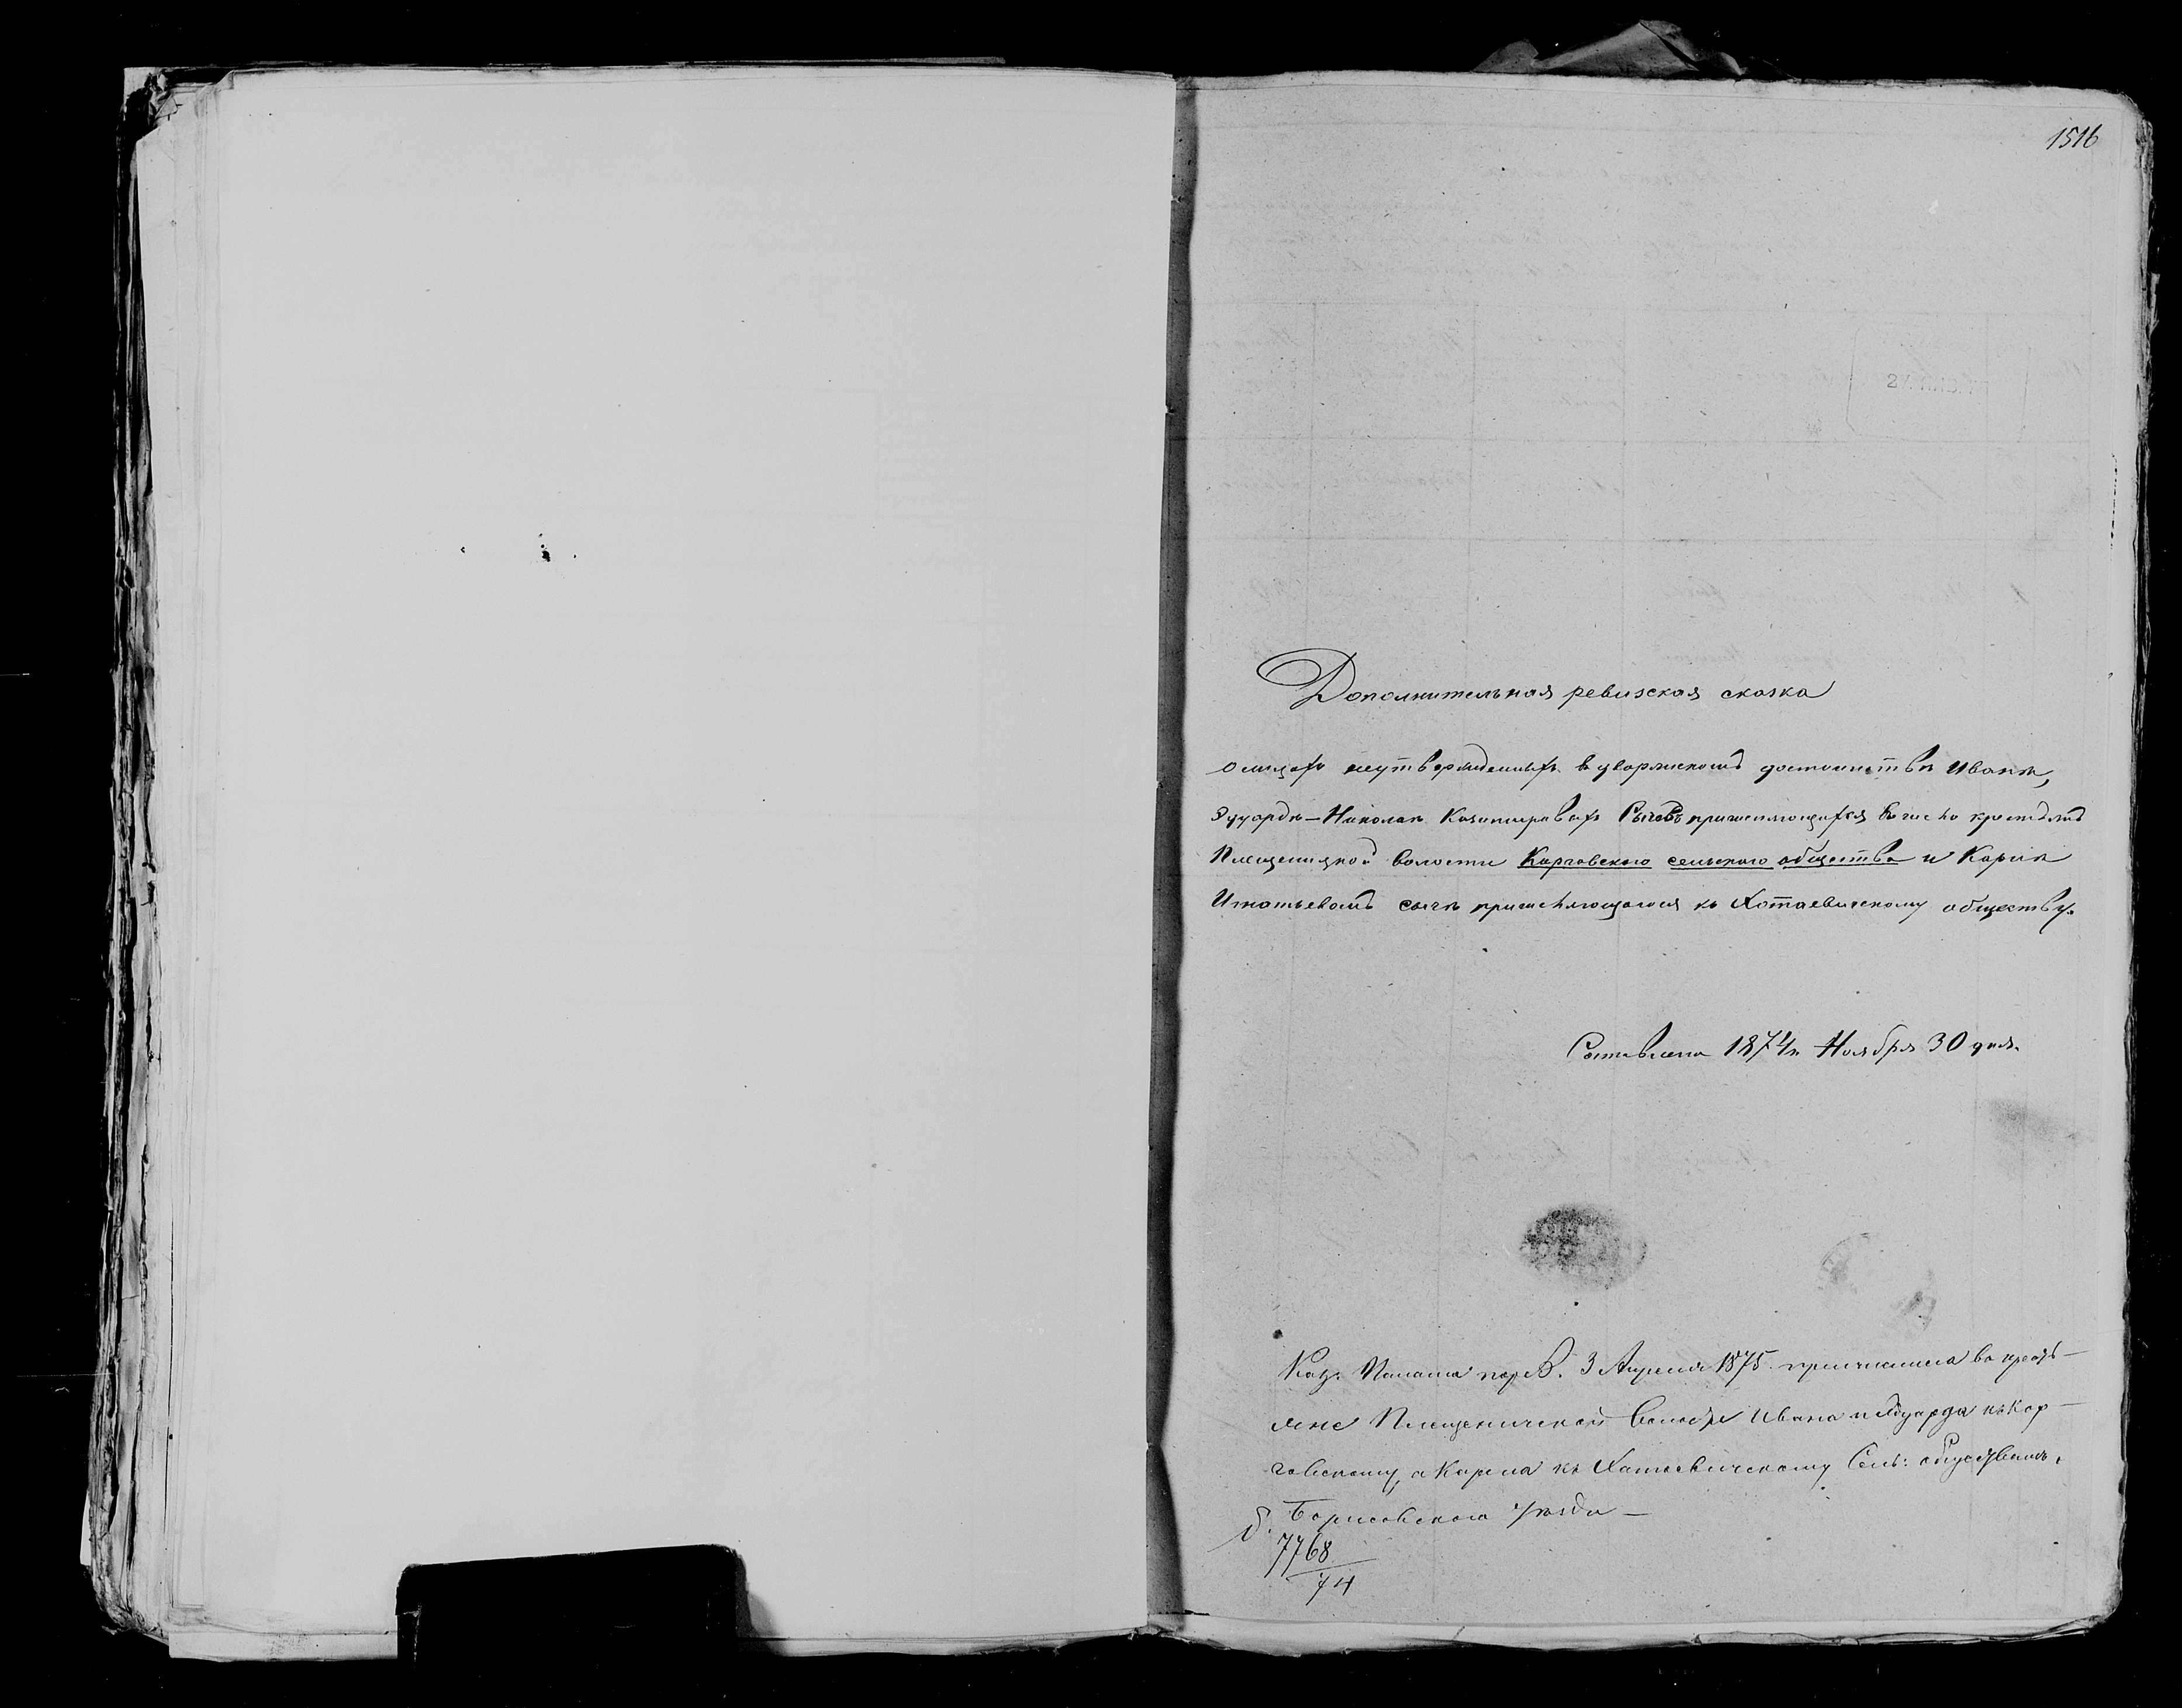 1516
Дополнительная ревизская сказка
о лицахъ неутвержденныхъ в дворянскомъ достоинствѣ Иванѣ,
Эдуардѣ-Николаѣ Казимировыхъ Сычевъ причисляющихся въ число крестьянъ
Плещеницкой волости Корговскаго сельскаго общества и Карпѣ
Игнатьевомъ Сычѣ причисляющагося къ Хотаевическому обществу.
Составлена 1874 г. Ноября 30 дня.
Каз. Палата 3 Апреля 1875 причислила въ кресть-
яне Плещенической Волости Ивана и Эдуарда къ Кор-
говскому, а Карпа къ Хатаевическому Сель: обществамъ,
Борисовскаго уѣзда —
7768
74